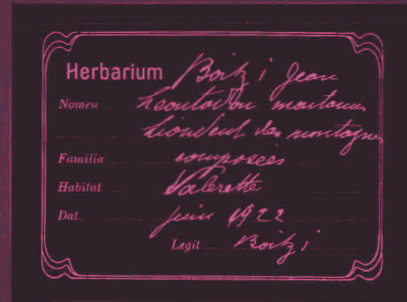 Herbarium Boitzi Jean
Nomen Leontodon montanus
Liondent des montagnes
Familia composées
Habitat Valerette
Dat. juin 1922
Legit Boitzi